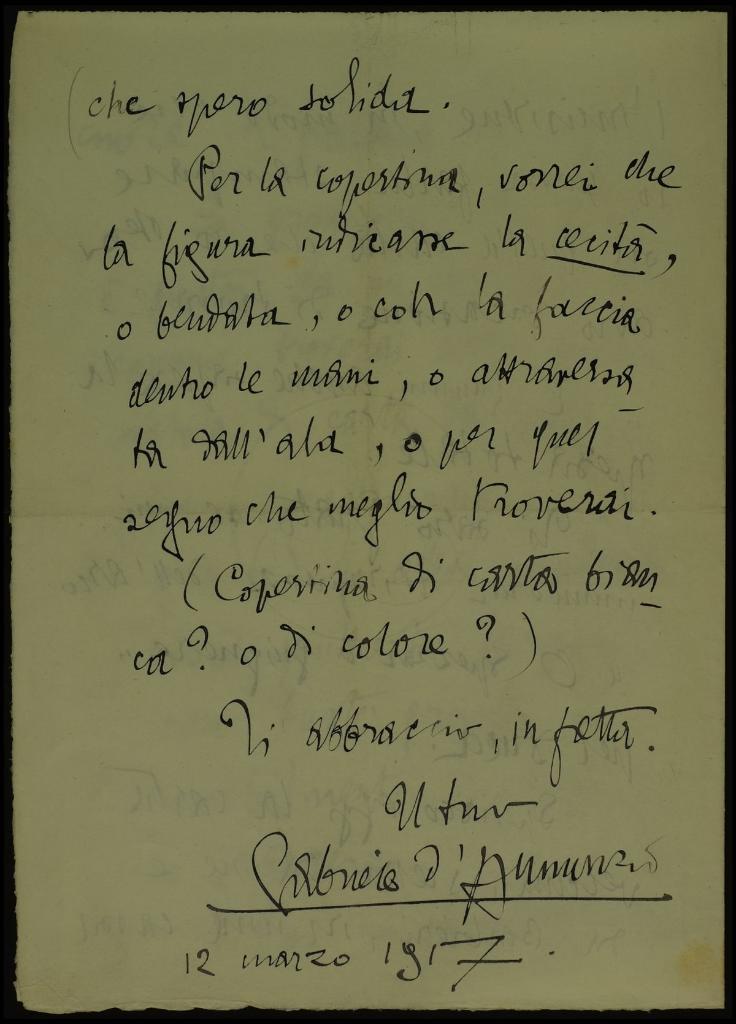 (che spero solida.
Per la copertina, vorrei che
la figura indicasse la cecità,
o bendata, o con la faccia
dentro le mani, o attraversa-
ta dall'ala, o per quel
segno che meglio troverai.
(Copertina di carta bian-
ca? o di colore?)
Ti abbraccio, in fretta.
Il tuo
Gabriele d'Annunzio
12 marzo 1917.